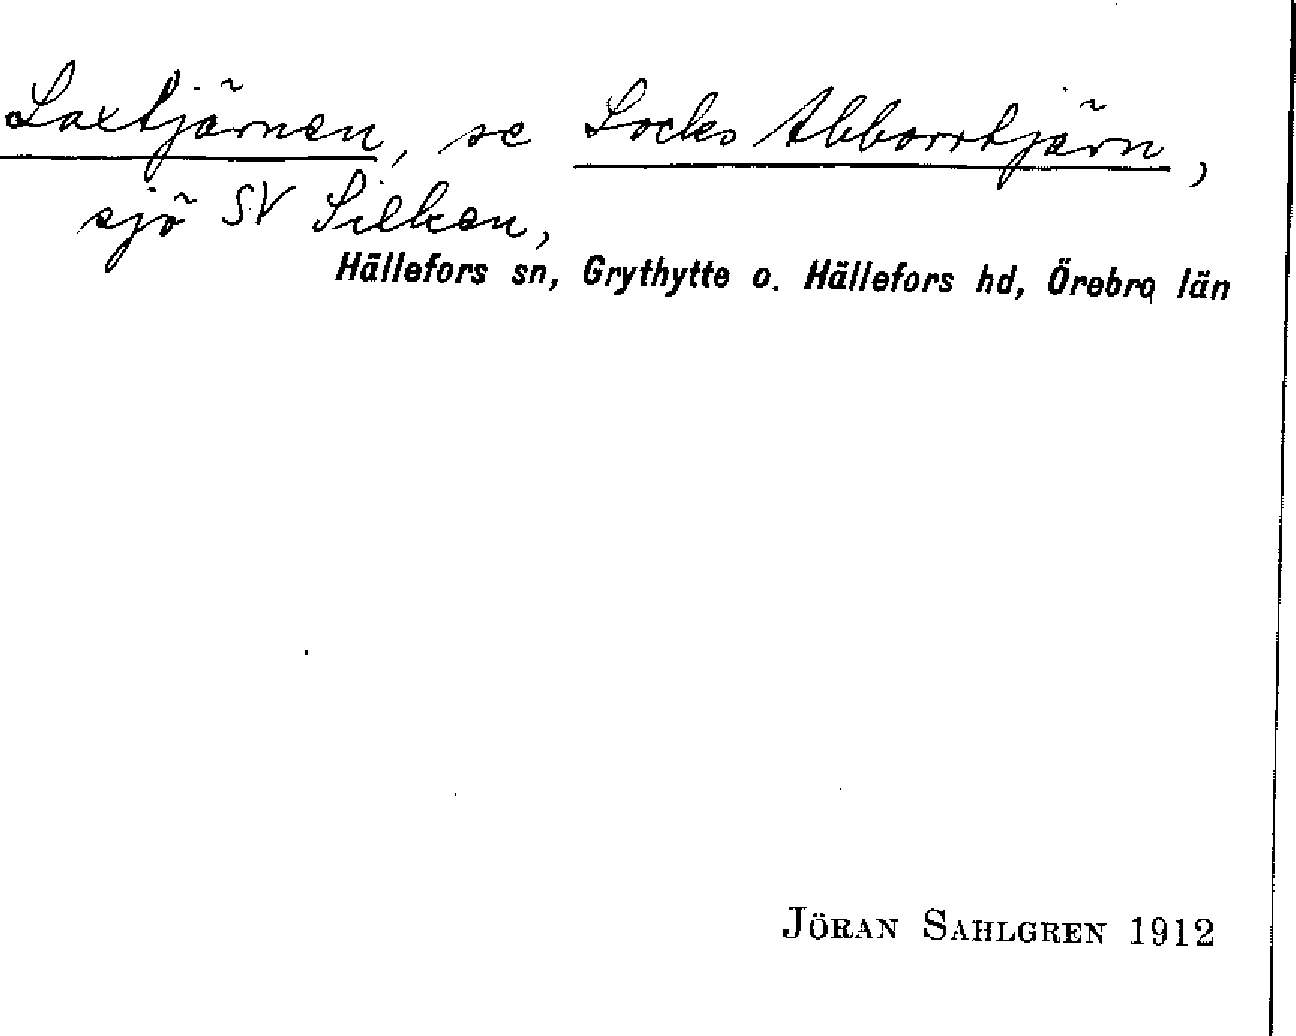 Laxtjärnen, se Locks Abborrtjärn,
sjö SV Silken,
Hällefors sn, Grythytte o. Hällefors hd, Örebro län
JÖRAN SAHLGREN 1912